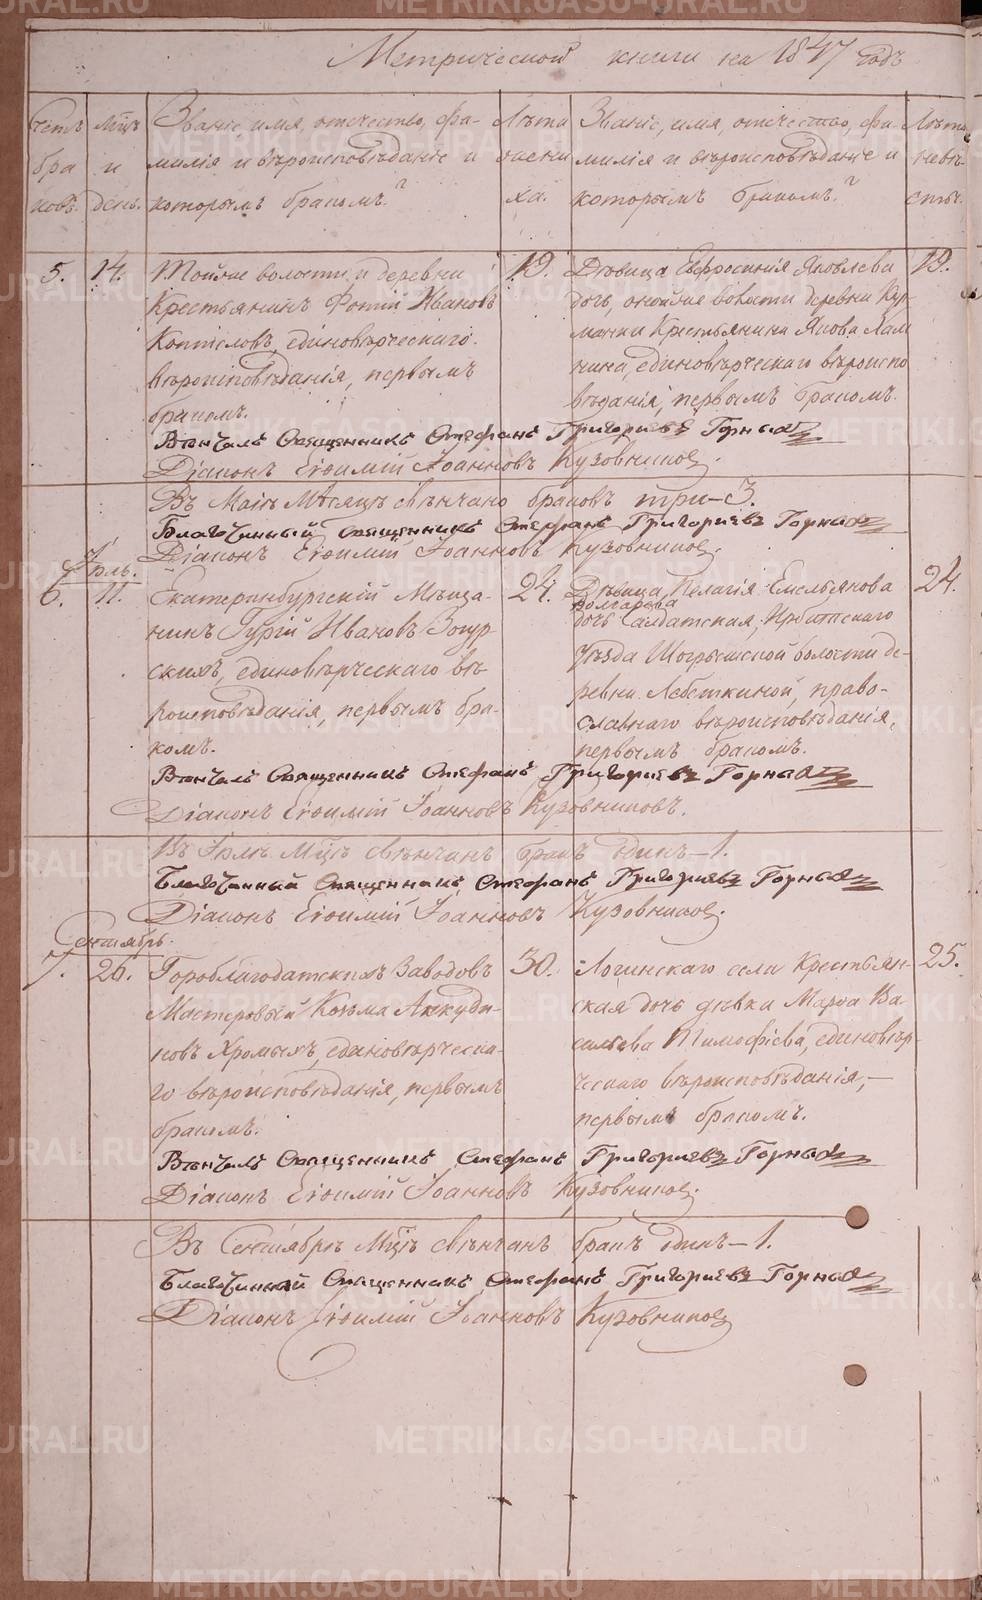 Метрической книги на 1847 годъ
Счетъ браковъ.
Мцъ и день.
Званіе, имя, отечество, фа-
милія и вѣроисповѣданіе и
которымъ бракомъ?
Лѣта жени
ха.
Званіе, имя, отечество, фа-
милія и вѣроисповѣданіе и
которымъ бракомъ?
Лѣта
невѣ-
сты.
5.
14.
Тойже волости и деревни
Крестьянинъ Фотій Ивановъ
единовѣрческаго
вѣроисповѣданія, первымъ
бракомъ.
19.
Дѣвица Евфросинія Яковлева
дочь, онойже волости деревни Кур-
манки Крестьянина Якова
единовѣрческаго вѣроиспо
вѣданія, первымъ бракомъ.
19.
Вѣнчалъ Священникъ Стефанъ Григорьевъ Горныхъ
Діаконъ Евѳимій Іоанновъ Кузовниковъ.
Въ Маіѣ Мѣсяцѣ свѣнчано браковъ три–3.
Благочинный священникъ Стефанъ Григорьевъ Горныхъ
Діаконъ Евѳимій Іоанновъ Кузовниковъ.
Іюль.
6.
11.
Екатеринбургскій Мѣща-
нинъ Гурій Ивановъ
единовѣрческаго вѣ-
роисповѣданія, первымъ бра-
комъ.
24.
Дѣвица Пелагія Емельянова
Болгарова
дочь Салдатская, Ирбитскаго
Уѣзда волости де-
ревни Лебеткиной, право-
славнаго вѣроисповѣданія,
первымъ бракомъ.
24.
Вѣнчалъ Священникъ Стефанъ Григорьевъ Горныхъ
Діаконъ Евѳимій Іоанновъ Кузовниковъ.
Въ Іюлѣ Мцѣ свѣнчанъ бракъ одинъ–1.
Благочинный Священникъ Стефанъ Григорьевъ Горныхъ
Діаконъ Евѳимій Іоанновъ Кузовниковъ.
Сентябрь.
7.
26.
Гороблагодатскихъ Заводовъ
Мастеровый Козьма Анкуди-
новъ Хромыхъ, единовѣрческа-
го вѣроисповѣданія, первымъ
бракомъ.
30.
Логинскаго села Крестьян-
ская дочь дѣвка Марѳа Ва-
сильева Тимофѣева, единовѣр-
ческаго вѣроисповѣданія,–
первымъ бракомъ.
25.
Вѣнчалъ Священникъ Стефанъ Григорьевъ Горныхъ
Діаконъ Евѳимій Іоанновъ Кузовниковъ.
Въ Сентябрѣ Мцѣ свѣнчанъ бракъ одинъ–1.
Благочинный Священникъ Стефанъ Григорьевъ Горныхъ
Діаконъ Евѳимій Іоанновъ Кузовниковъ
METRIKI.GASO-URAL.RU